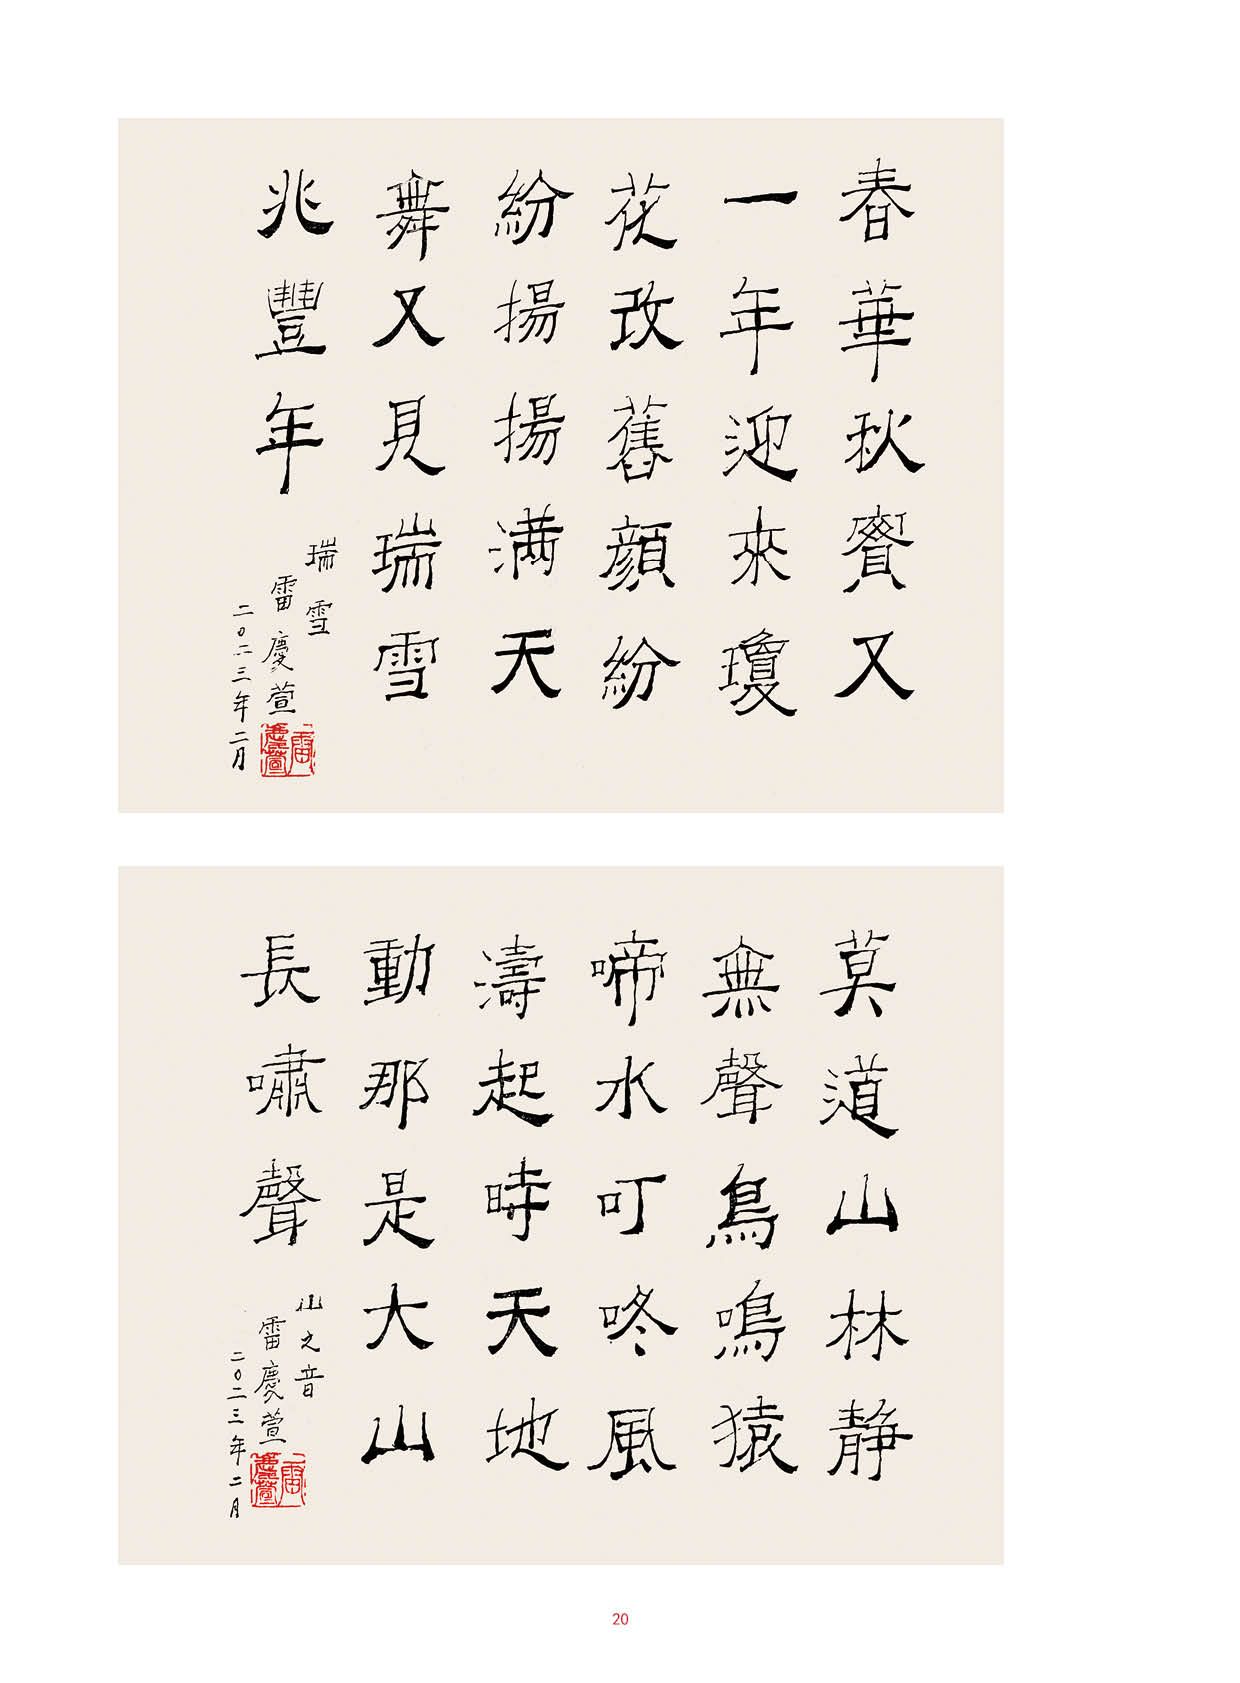 春華秋賚又
一年迎來瓊
花改舊顏紛
紛揚揚满天
舞又見瑞雪
兆豐年
瑞雪
雷慶萱
二〇二三年二月
莫道山林静
無聲鳥鳴猿
啼水叮咚風
濤起時天地
動那是大山
長嘯聲
山之音
雷慶萱
二〇二三年二月
20